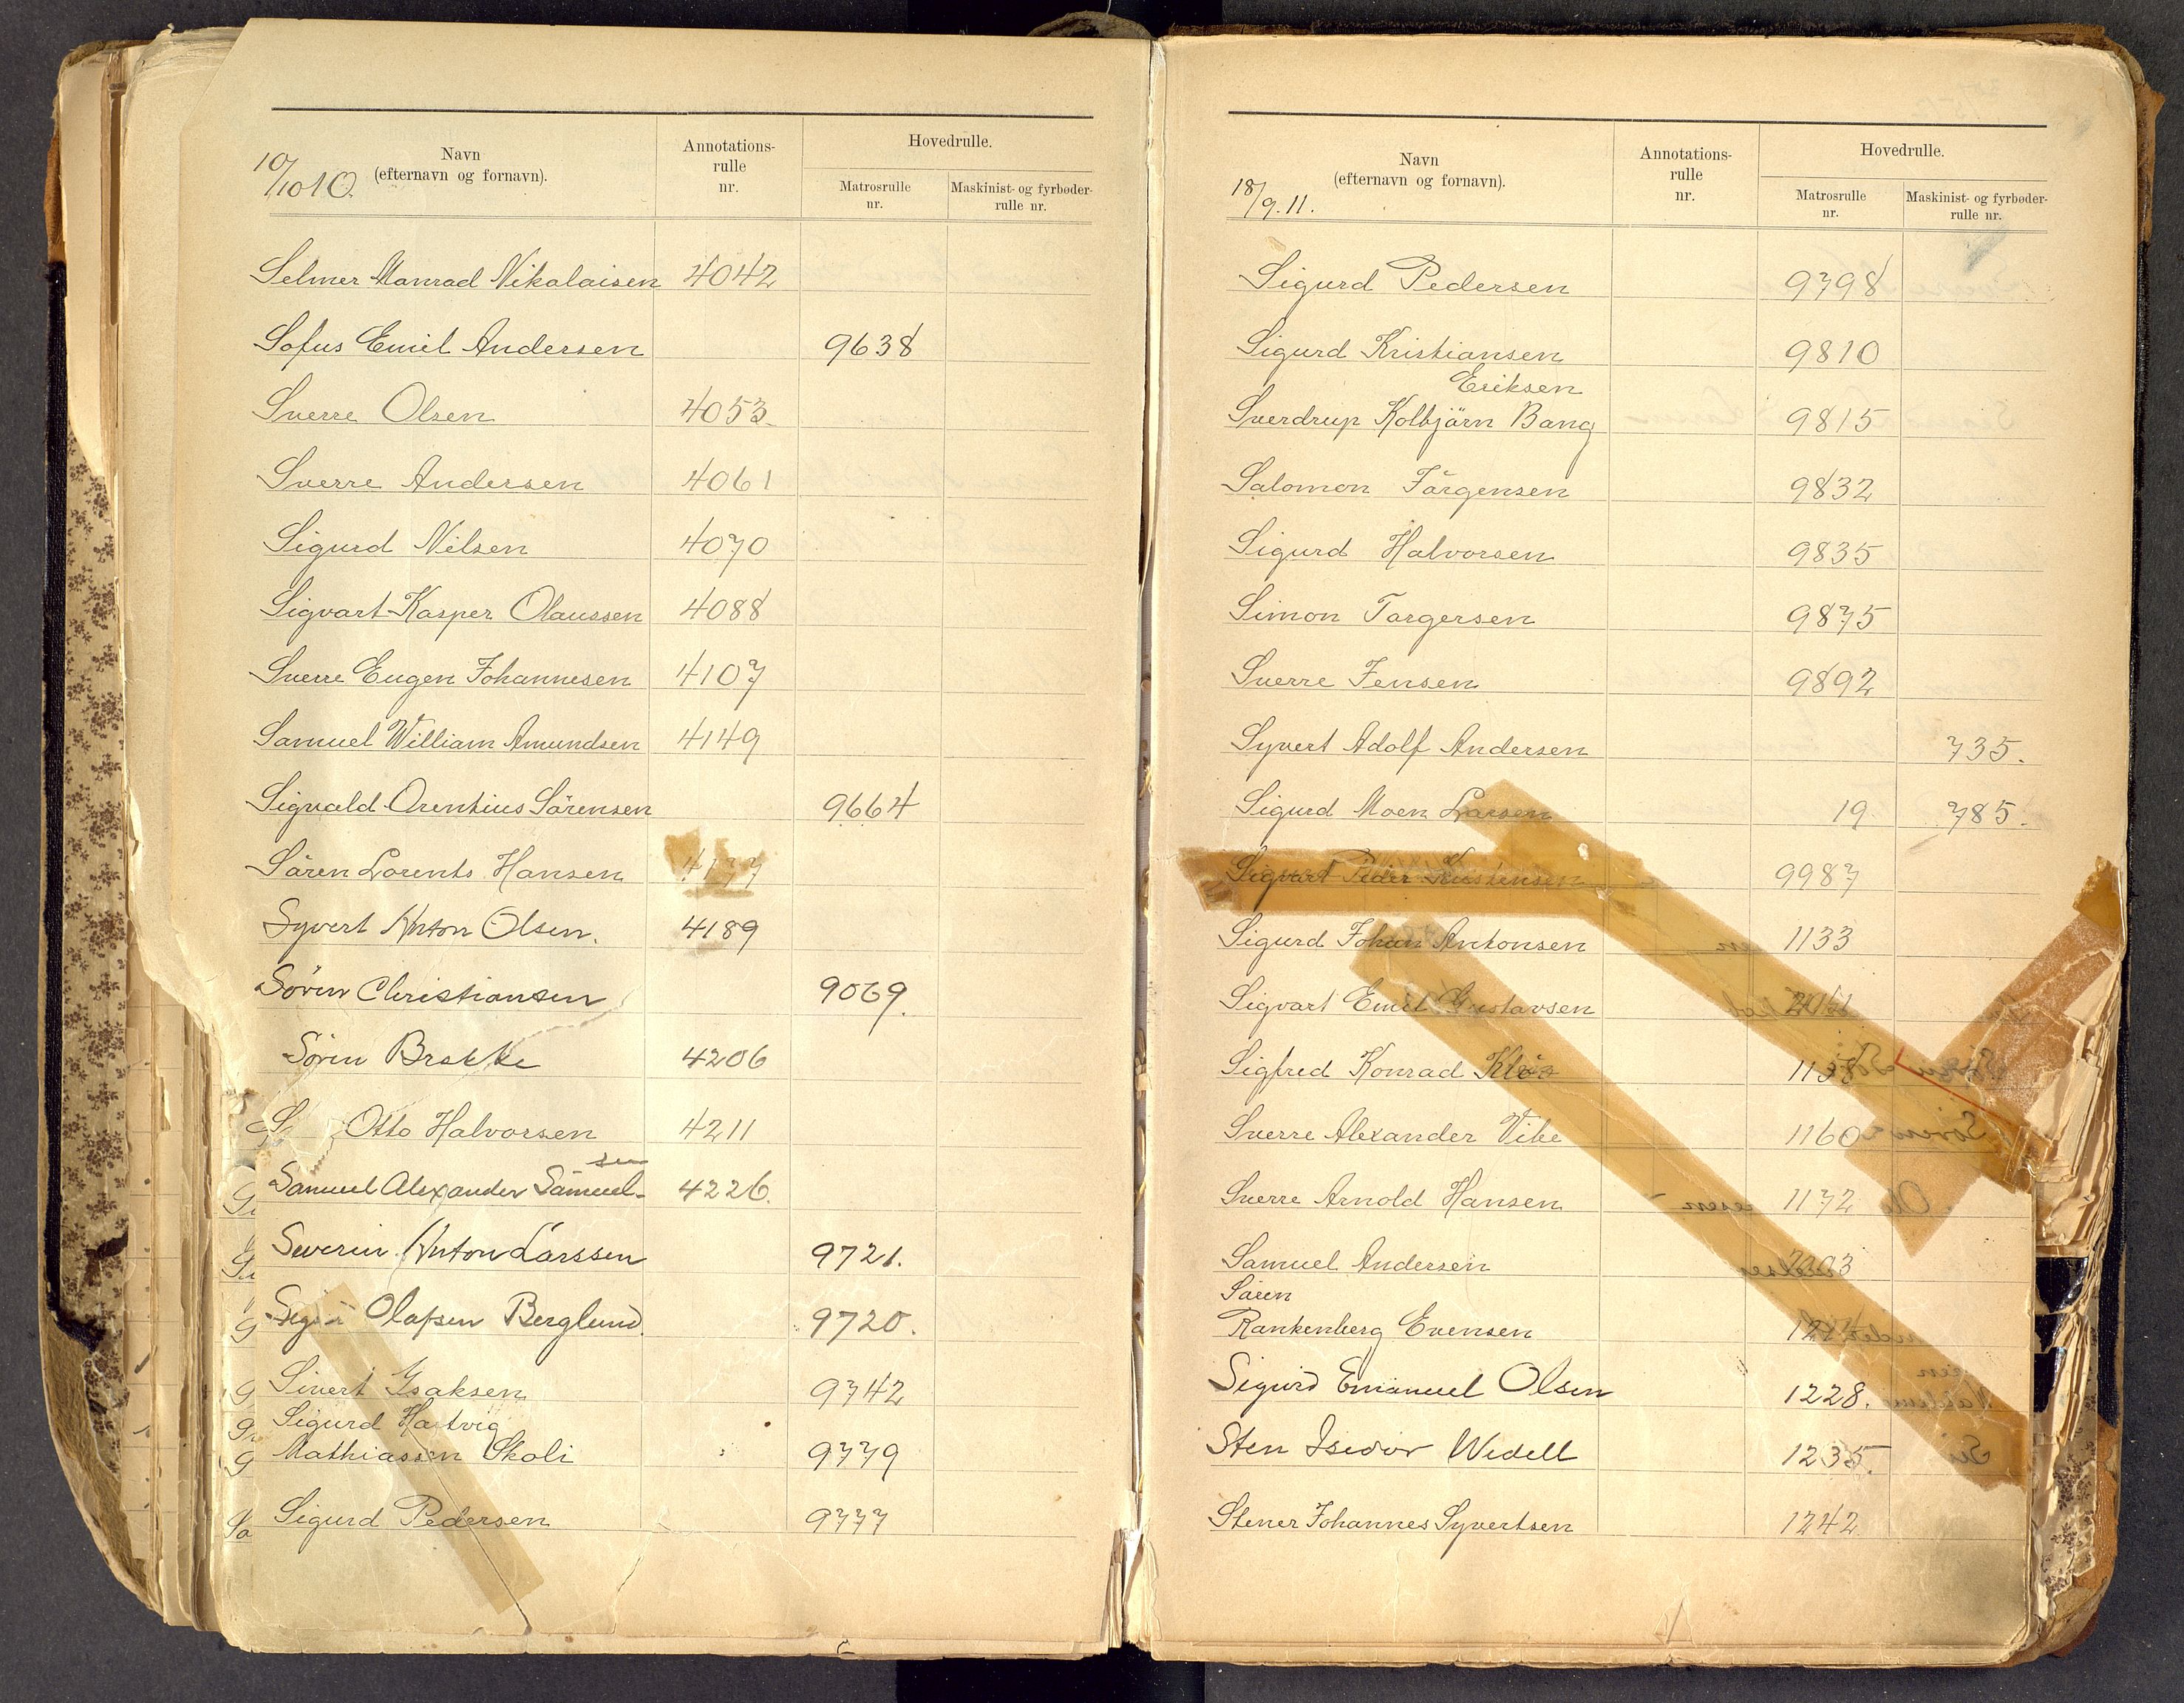 10/10 10.
Navn
(efternavn og fornavn).
Annotations-
rulle
nr.
Hovedrulle.
Matrosrulle
nr.
Maskinist- og fyrbøder-
rulle nr.
Selmer Manrad Nikolaisen 4042
Sofus Emil Andersen 9638
Sverre Olsen 4053.
Sverre Andersen 4061
Sigurd Nilsen 4070
Sigvart Kasper Olaussen 4088
Sverre Eugen Johannesen 4107
Samuel William Amundsen 4149
Sigvald Arentius Sörensen 9664
Sören Lorents Hansen 4177
Syvert Anton Olsen. 4189
Sören Christiansen 9069.
Sören Brekke 4206
Otto Halvorsen 4211
sen
Samuel Alexander Samuel- 4226.
Severin Anton Larssen 9721.
Olafsen Berglund. 9720.
Sivert Isaksen 9742
Sigurd Hartvig
Mathiassen Skoli 9779
Sigurd Pedersen 9777
18/9.11.
Navn
(efternavn og fornavn).
Annotations-
rulle
nr.
Hovedrulle.
Matrosrulle
nr.
Maskinist- og fyrbøder-
rulle nr.
Sigurd Pedersen 9798
Sigurd Kristiansen 9810
Eriksen
Sverdrup Kolbjörn Bang 9815
Salomon Jörgensen 9832
Sigurd Halvorsen 9835
Simon Torgersen 9875
Sverre Jensen 9892
Syvert Adolf Andersen 735.
Sigurd Moen Larsen 19 785.
Sigvart Peder Kristensen 9987
Sigurd Johan Antonsen 1133
Sigvart Emil Gustavsen
Sigfred Konrad 1138
Sverre Alexander Vibe 1160
Sverre Arnold Hansen 1172
Samuel Andersen
Sören
Rankenberg Evensen
Sigurd Emanuel Olsen 1228.
Sten Isidor Widell 1235.
Stener Johannes Syvertsen 1242